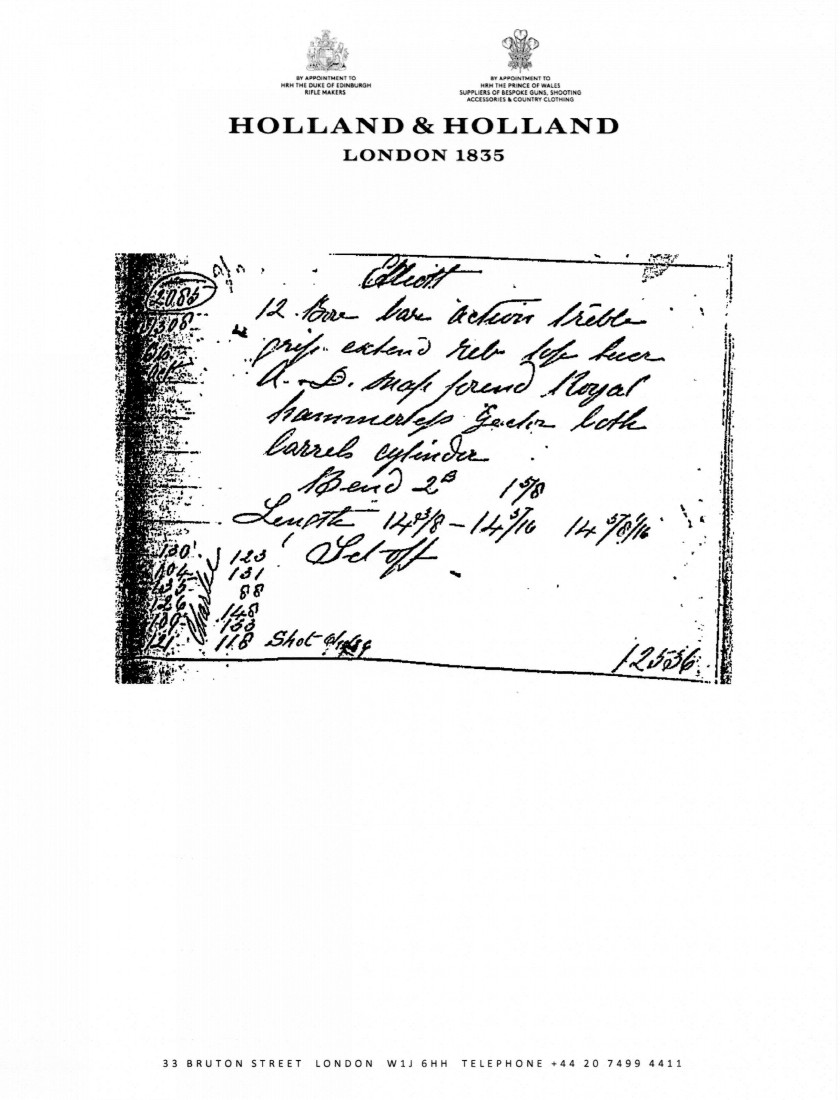 BY APPOINTMENT TO
HRH THE DUKE OF EDINBURGH
RIFLE MAKERS
BY APPOINTMENT TO
HRH THE PRINCE OF WALES
SUPPLIERS OF BESPOKE GUNS, SHOOTING
ACCESSORIES & COUNTRY CLOTHING
HOLLAND & HOLLAND
LONDON 1835
Elliott
2085
12 Bore bar action treble
grip extend reb top lever
A. & D. snap forend Royal
hammerless Ejector both
barrels cylinder
Bend 2 1 5/8
Length 14 3/8 – 14 5/16 14 5/8 1/16
Set off
130 123
104 131
435 88
126 148
109 153
121 118 Shot
12536
33 BRUTON STREET LONDON W1J 6HH TELEPHONE +44 20 7499 4411